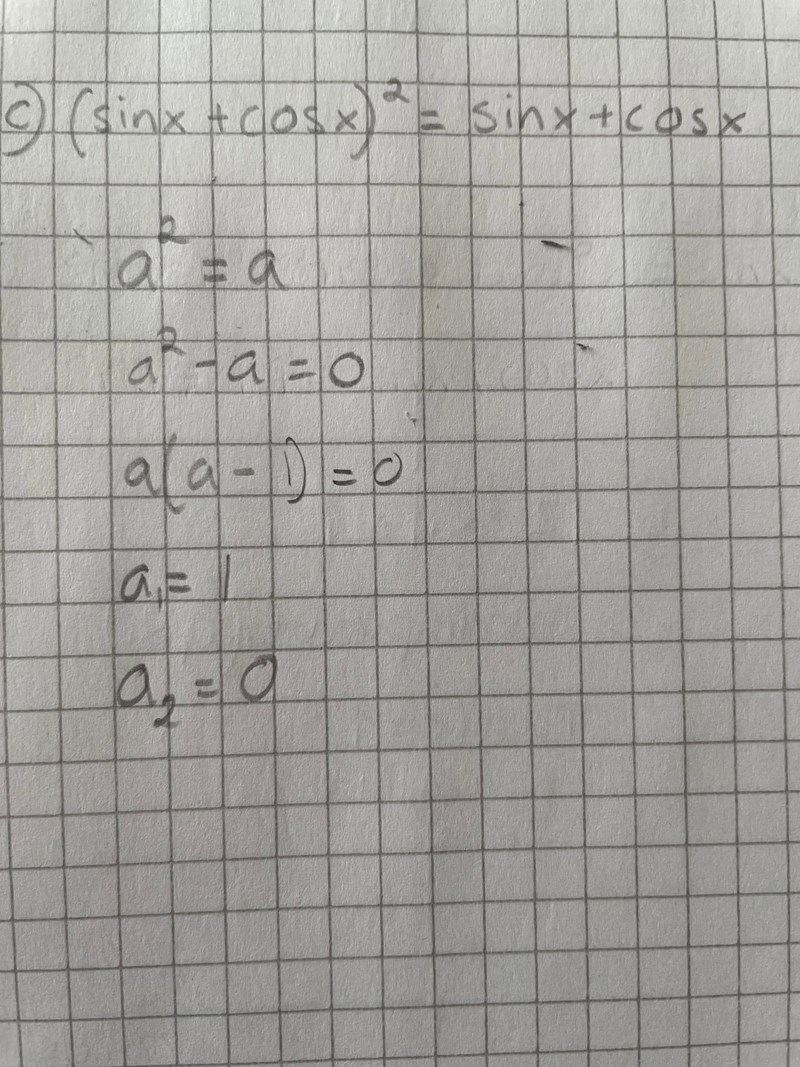 c) (sinx + cosx)² = sinx + cosx
a² = a
a² - a = 0
a(a - 1) = 0
a₁ = 1
a₂ = 0